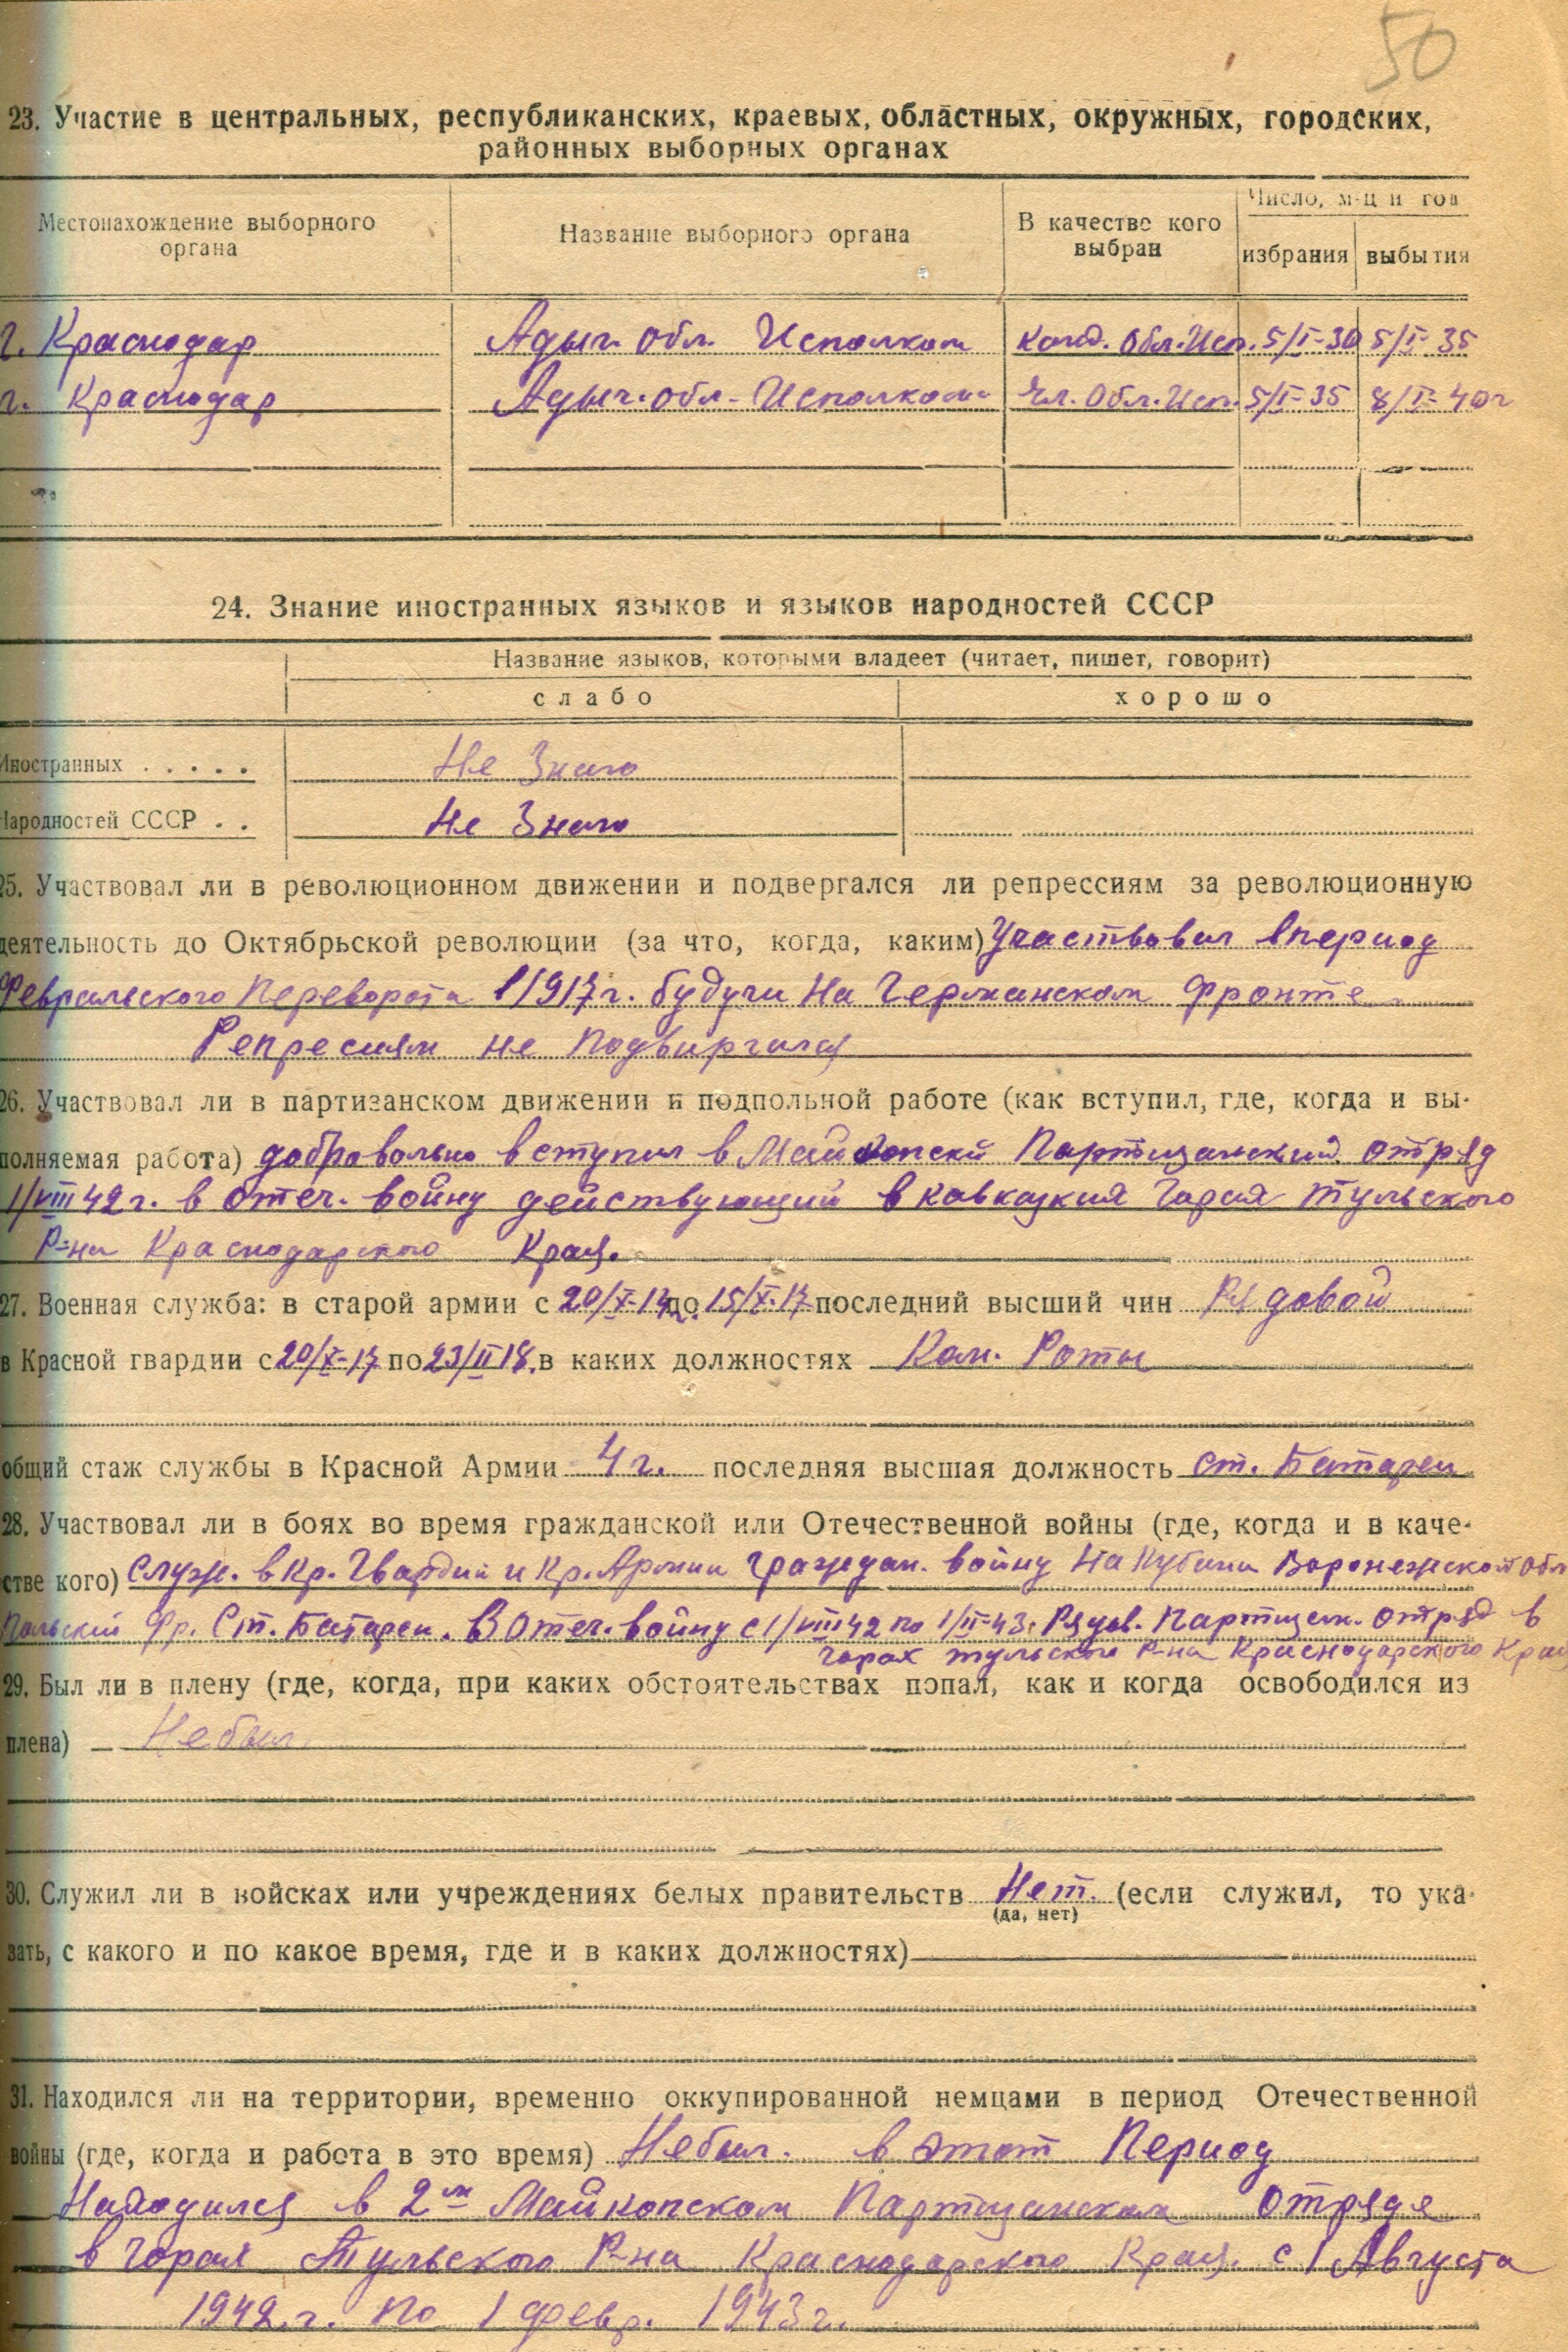 50
23. Участие в центральных, республиканских, краевых, областных, окружных, городских,
районных выборных органах
Местонахождение выборного органа | Название выборного органа | В качестве кого выбран | Число, м-ц и год
избрания | выбытия
г. Краснодар | Адыг. обл. Исполком | канд. Обл.Исп. | 5/I-30 | 5/I-35
г. Краснодар | Адыг. обл. Исполком | чл. Обл.Исп. | 5/I-35 | 8/I-40г
24. Знание иностранных языков и языков народностей СССР
Название языков, которыми владеет (читает, пишет, говорит)
слабо | хорошо
Иностранных . . . . . Не Знаю
Народностей СССР . . Не Знаю
25. Участвовал ли в революционном движении и подвергался ли репрессиям за революционную
деятельность до Октябрьской революции (за что, когда, каким) Участвовал впериод
Февральского Переворота в 1917г. будучи на Германском Фронте
Репресиям не Подвиргался
26. Участвовал ли в партизанском движении и подпольной работе (как вступил, где, когда и вы-
полняемая работа) добровольно вступил в Майкопский Партизанский отряд
1/VIII 42г. в отеч. войну действующий в кавказкия Горая Тульского
Р-на Краснодарского Края.
27. Военная служба: в старой армии с 20/X- до 15/X-17 последний высший чин Рядовой
в Красной гвардии с 20/X-17 по 23/II 18. в каких должностях Ком. Роты
общий стаж службы в Красной Армии 4 г. последняя высшая должность ст. Батареи
28. Участвовал ли в боях во время гражданской или Отечественной войны (где, когда и в каче-
стве кого) служ. в Кр. Гвардии и Кр. Армии Граждан. войну На Кубани Воронежской обл
Польский Фр. Ст. Батареи. В Отеч. войну с 1/VIII 42 по 1/II-43г Рядов. Партизан. отряд в
Горах Тульского Р-на Краснодарского Края
29. Был ли в плену (где, когда, при каких обстоятельствах попал, как и когда освободился из
плена) Не был
30. Служил ли в войсках или учреждениях белых правительств Нет. (если служил, то ука-
(да, нет)
зать, с какого и по какое время, где и в каких должностях)
31. Находился ли на территории, временно оккупированной немцами в период Отечественной
войны (где, когда и работа в это время) Не был. в этот Период
Находился в 2м Майкопском Партизанском отряде
в Горая Тульского Р-на Краснодарского Края. с 1 Августа
1942.г. по 1 февр. 1943г.